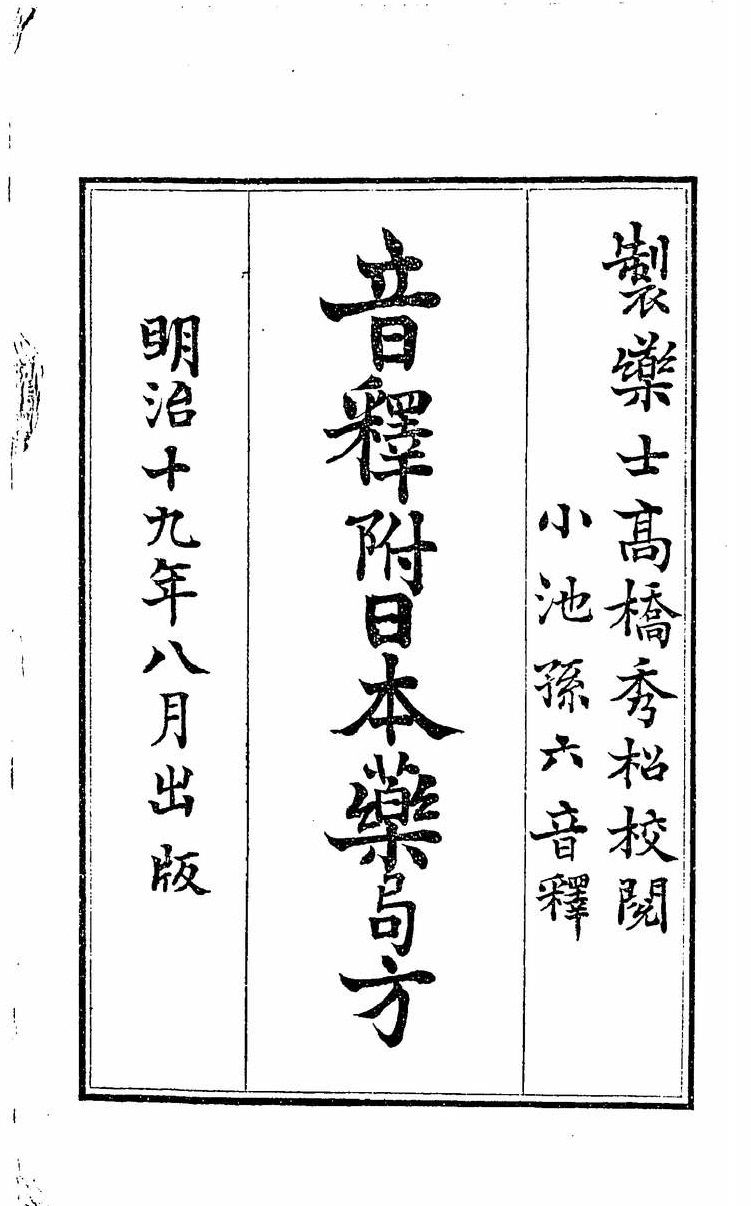 製藥士髙橋秀松校閱
小池孫六音釋
音釋附日本藥局方
明治十九年八月出版